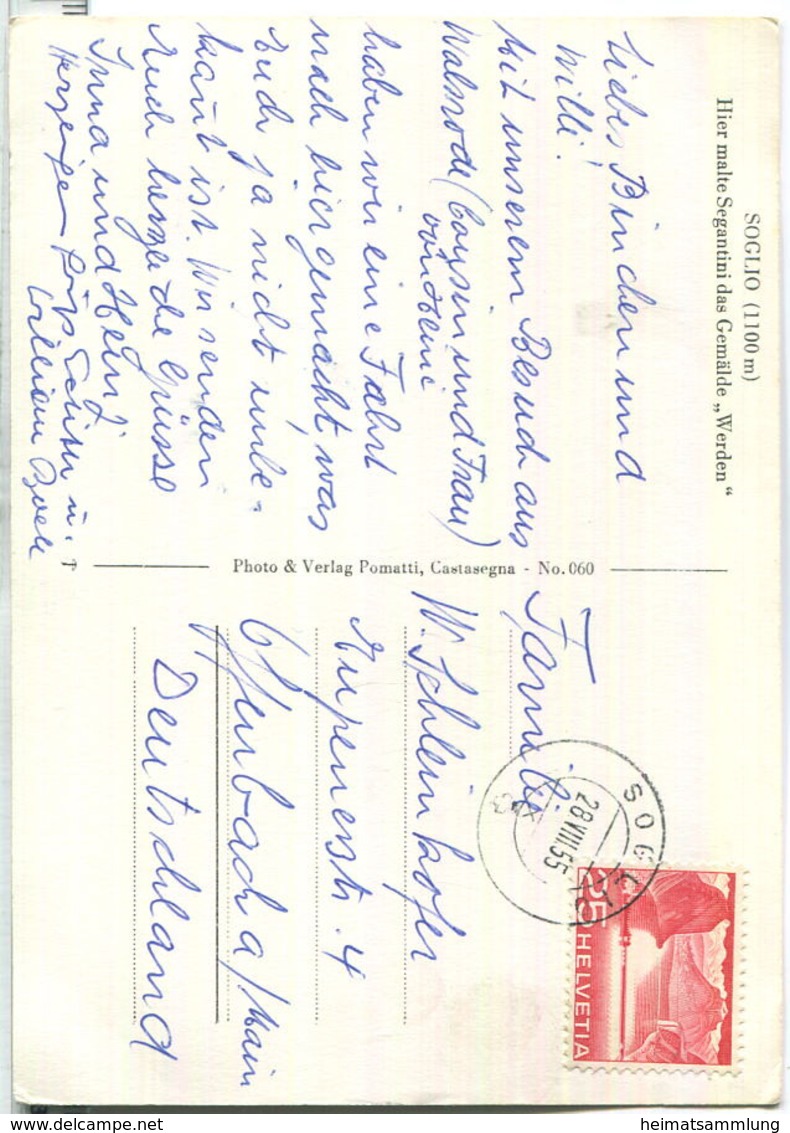 SOGLIO (1100 m)
Hier malte Segantini das Gemälde „Werden“
Liebes Binchen und
Willi!
Mit unserem Besuch aus
Walsrode (Cousin und Frau)
von Heinz
haben wir eine Fahrt
nach hier gemacht, was
Euch ja nicht unbe-
kannt ist. Wir senden
Euch herzliche Grüsse
Inna und Heinz
Herzigen u.
Photo & Verlag Pomatti, Castasegna - No. 060
Familie
W. Schleinkofer
4
Offenbach a/Main
Deutschland
SOGLIO
28.VIII.55
25
HELVETIA
heimatsammlung